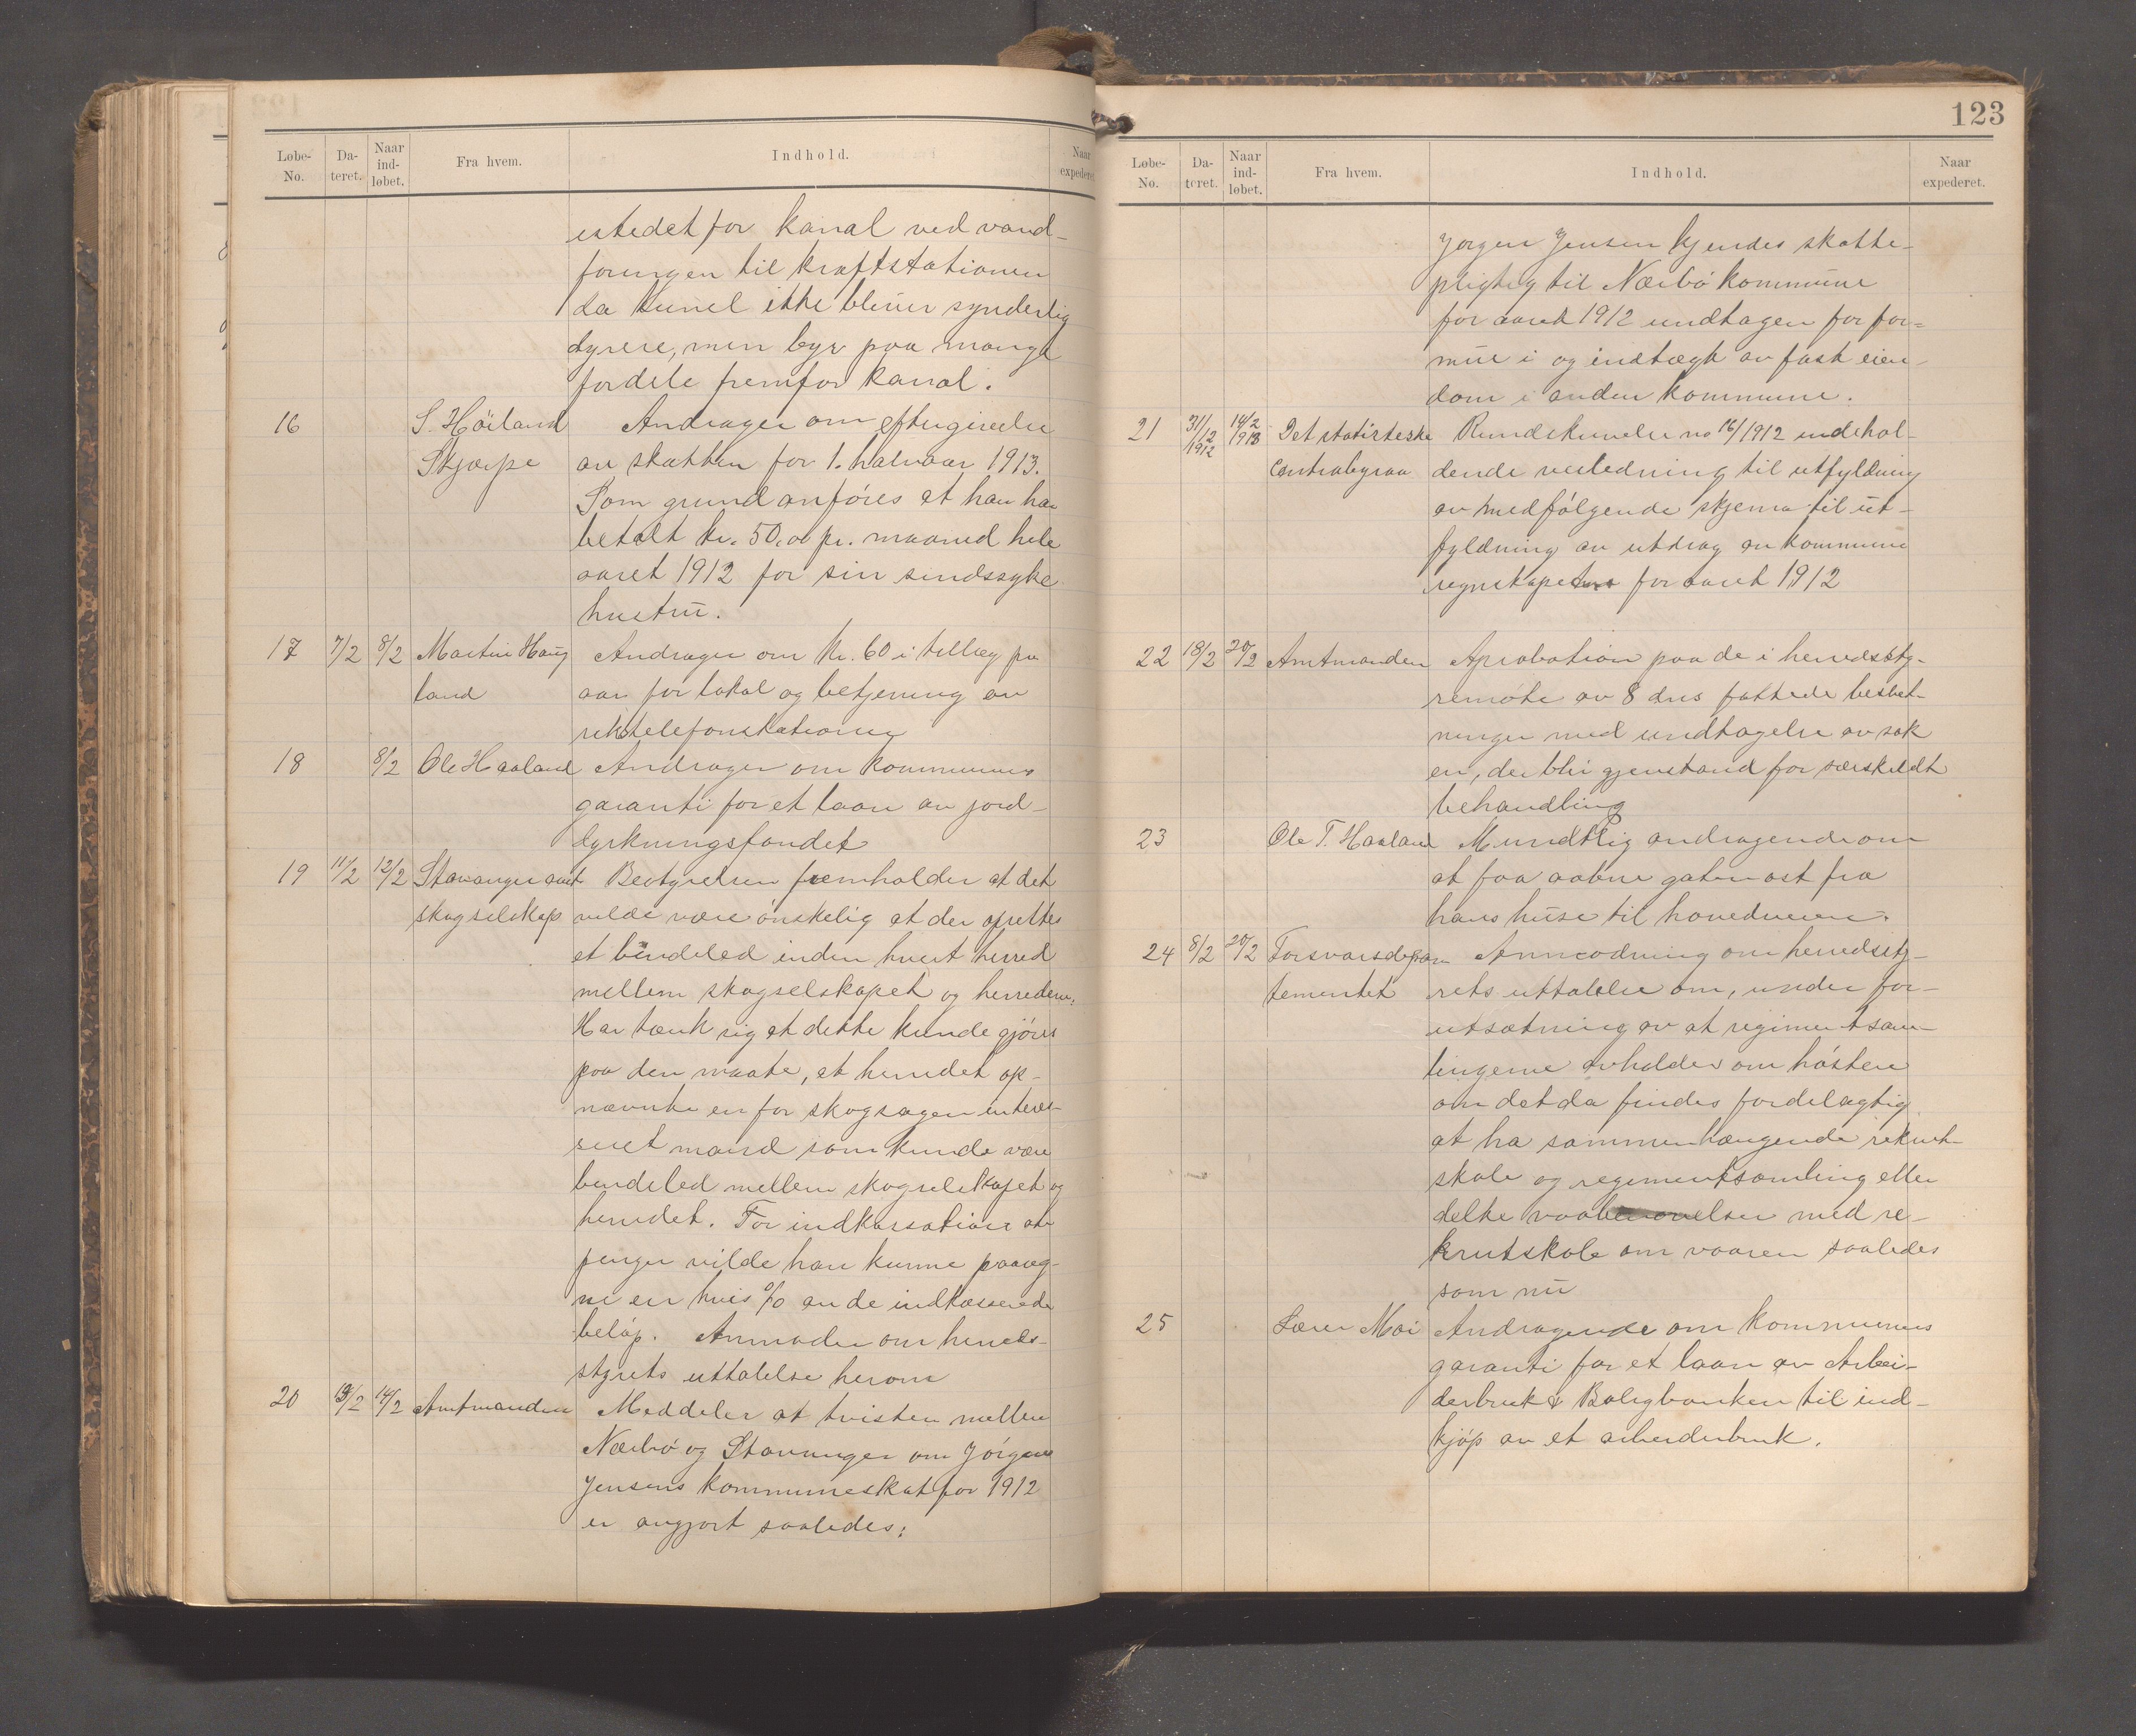 Løbe-No. Da-teret. Naar ind-løbet. Fra hvem. Indhold. Naar expederet.
istedet for kanal ved vand-
føringen til kraftstationen
da tunel ikke bliver synderlig
dyrere, men byr paa mange
fordele fremfor kanal.
16 S. Høiland Andrager om eftergivelse
Skjærpe av skatten for 1. halvaar 1913.
Som grund anføres at han har
betalt kr. 50.00 pr. maaned hele
aaret 1912 for sin sindssyke
hustru.
17 7/2 8/2 Martin Haug Andrager om kr. 60 i tillæg pr
land aar for lokal og betjening av
rikstelefonstationen
18 8/2 Ole Haaland Andrager om kommunens
garanti for et laan av jord-
dyrkningsfondet
19 11/2 12/2 Stavanger amt Bestyrelsen fremholder at det
skogselskap vilde være ønskelig at der oprettes
et bindeled inden hvert herred
mellem skogselskapet og herrederne.
Har tænkt sig at dette kunde gjøres
paa den maate, at herredet op-
nævnte en for skogsagen interes-
seret mand som kunde være
bindeled mellem skogselskapet og
herredet. For indkassation av
penger vilde han kunne paareg-
ne en hvis % av de indkasserede
beløp. Anmoder om herreds-
styrets uttalelse herom
20 13/2 14/2 Amtmanden Meddeler at tvisten mellem
Nærbø og Stavanger om Jørgen
Jensens kommuneskat for 1912
er avgjort saaledes:
123
Løbe-No. Da-teret. Naar ind-løbet. Fra hvem. Indhold. Naar expederet.
Jørgen Jensen kjendes skatte-
pligtig til Nærbø kommune
for aaret 1912 undtagen for for-
mue i og indtægt av fast eien-
dom i anden kommune.
21 31/12 1912 14/2 1913 Det statistiske Rundskrivelse no 16/1912 indehol-
Centralbyraa dende veiledning til utfyldning
av medfølgende skjema til ut-
fyldning av utdrag av kommune
regnskapet for aaret 1912
22 18/2 20/2 Amtmanden Aprobation paa de i herredssty-
remøte av 8 dns fattede beslut-
ninger med undtagelse av sak
en, der blir gjenstand for særskildt
behandling
23 Ole T. Haaland Mundtlig andragende om
at faa aabne gaten ost fra
hans huse til hovedveien.
24 8/2 20/2 Forsvarsdepar Anmodning om herredssty-
tementet rets uttalelse om, under for-
utsætning av at regimentsam-
lingerne avholdes om høsten
om det da findes fordelagtig
at ha sammenhængende rekrut-
skole og regimentsamling eller
delte vaabenøvelser med re-
krutskole om vaaren saaledes
som nu
25 Lærer Moi Andragende om kommunens
garanti for et laan av Arbei-
derbruk & Boligbanken til ind-
kjøp av et arbeiderbruk.